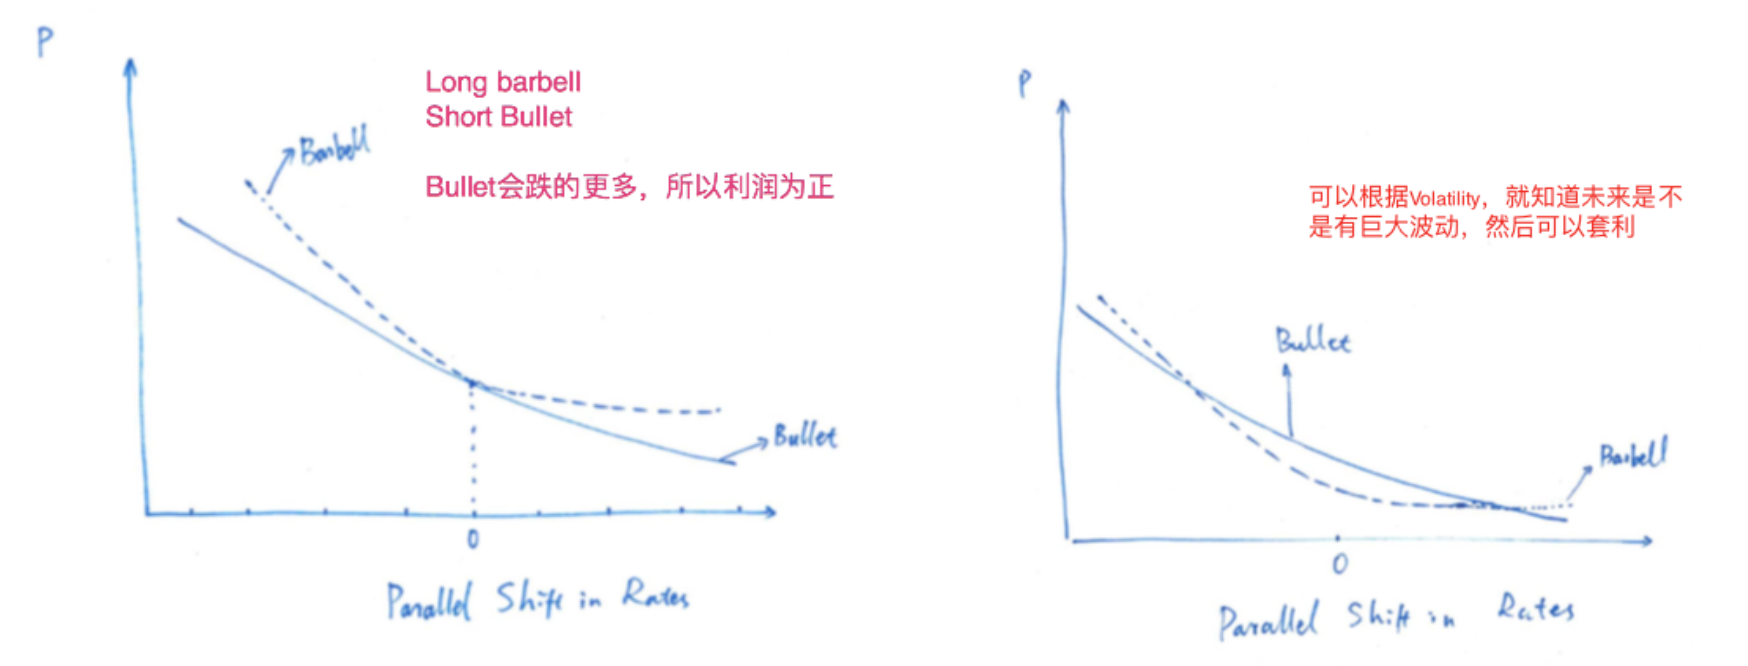 P
Long barbell
Short Bullet
Barbell
Bullet会跌的更多，所以利润为正
Bullet
0
Parallel Shift in Rates
P
可以根据Volatility，就知道未来是不
是有巨大波动，然后可以套利
Bullet
Barbell
0
Parallel Shift in Rates